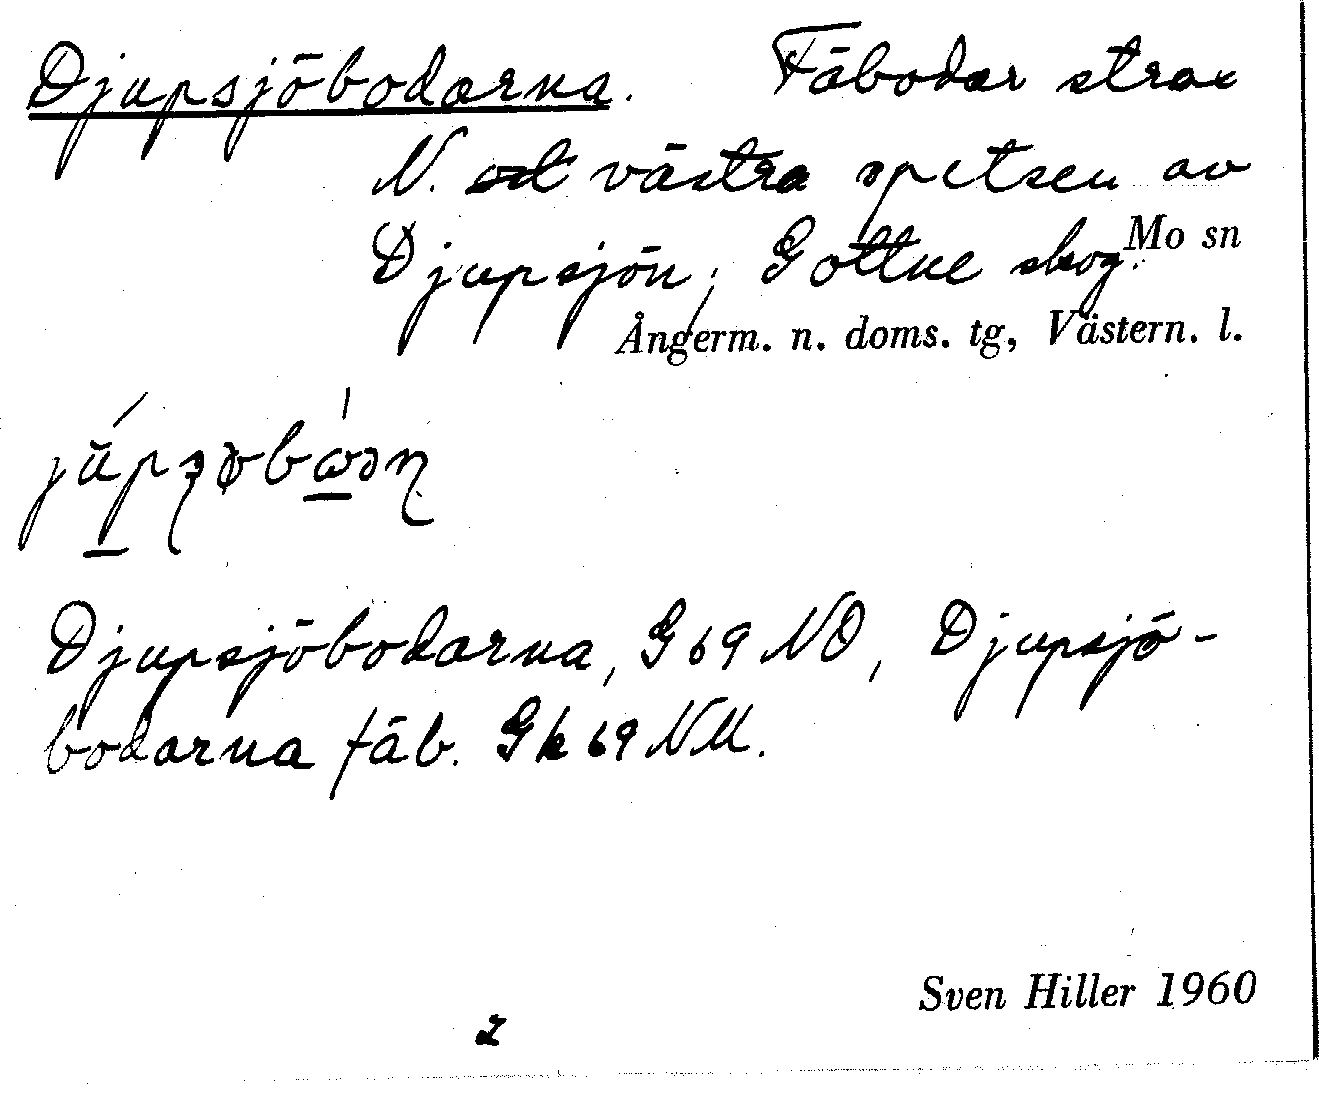 Djupsjöbodarna. Fäbodar strax
N. om västra spetsen av
Djupsjön, Gottne skog.
Mo sn
Ångerm. n. doms. tg, Västern. l.
Djupsjöbodarna, G 69 NO, Djupsjö-
bodarna fäb. Gk 69 NM.
Sven Hiller 1960